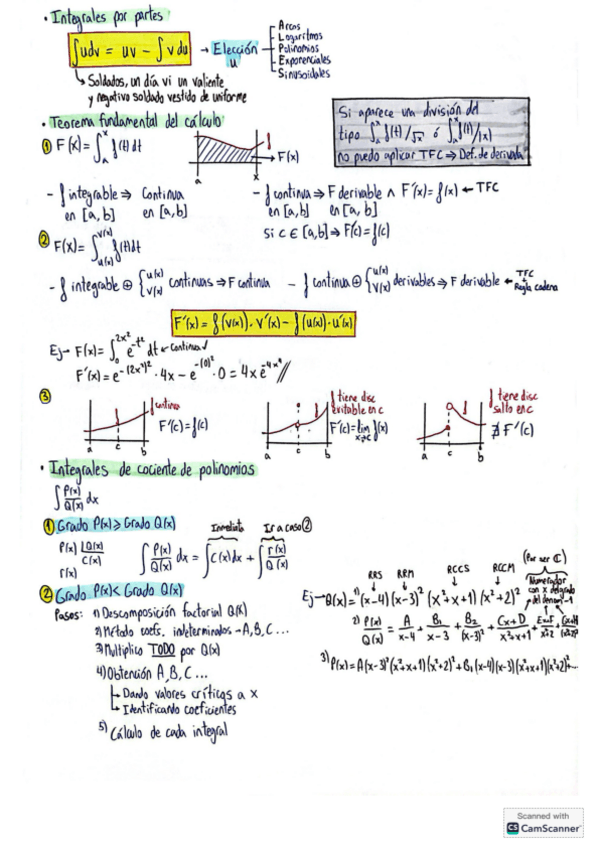 · Integrales por partes
∫udv = uv − ∫v du → Elección u
Arcos
Logaritmos
Polinomios
Exponenciales
Sinusoidales
↳ Soldados, un día vi un valiente
y negativo soldado vestido de uniforme
· Teorema fundamental del cálculo
① F(x) = ∫ₐˣ f(t) dt
f
→ F(x)
a x
Si aparece una división del
tipo ∫ₐˣ f(t)/√x ó ∫ₐˣ f(t)/(x)
no puedo aplicar TFC ⇒ Def. de derivada
- f integrable ⇒ Continua
en [a, b] en [a, b]
- f continua ⇒ F derivable ∧ F'(x) = f(x) ← TFC
en [a, b] en [a, b]
si c ∈ [a, b] ⇒ F'(c) = f(c)
② F(x) = ∫ f(t) dt
v(x)
u(x)
- f integrable ⊕ { u(x) v(x) continuas ⇒ F continua
- f continua ⊕ { u(x) v(x) derivables ⇒ F derivable ← TFC Regla cadena
F'(x) = f(v(x)) · v'(x) − f(u(x)) · u'(x)
Ej → F(x) = ∫₀^2x² e^-t² dt ← Continua
F'(x) = e^-(2x²)² · 4x − e^-(0)² · 0 = 4x e^-4x⁴ //
③
f continua
F'(c) = f(c)
a c b
f tiene disc
evitable en c
F'(c) = lim f(x)
x→c
a c b
f tiene disc
salto en c
∄ F'(c)
a c b
· Integrales de cociente de polinomios
∫ P(x)/Q(x) dx
① Grado P(x) ⩾ Grado Q(x)
P(x) |Q(x)
r(x) C(x)
Inmediata
Ir a caso ②
∫ P(x)/Q(x) dx = ∫ C(x) dx + ∫ r(x)/Q(x)
② Grado P(x) < Grado Q(x)
Pasos: 1) Descomposición factorial Q(x)
2) Método coefs. indeterminados → A, B, C ...
3) Multiplico TODO por Q(x)
4) Obtención A, B, C ...
↳ Dando valores críticos a x
↳ Identificando coeficientes
5) Cálculo de cada integral
(Por ser ℂ)
RRS RRM RCCS RCCM
Numerador
con x
Ej → 1) Q(x) = (x−4)(x−3)² (x²+x+1)(x²+2)²
2) P(x)/Q(x) = A/(x−4) + B₁/(x−3) + B₂/(x−3)² + (Cx+D)/(x²+x+1) +
3) P(x) = A(x−3)²(x²+x+1)(x²+2)² + B₁(x−4)(x−3)(x²+x+1)(x²+2)² + ...
Scanned with
CS CamScanner